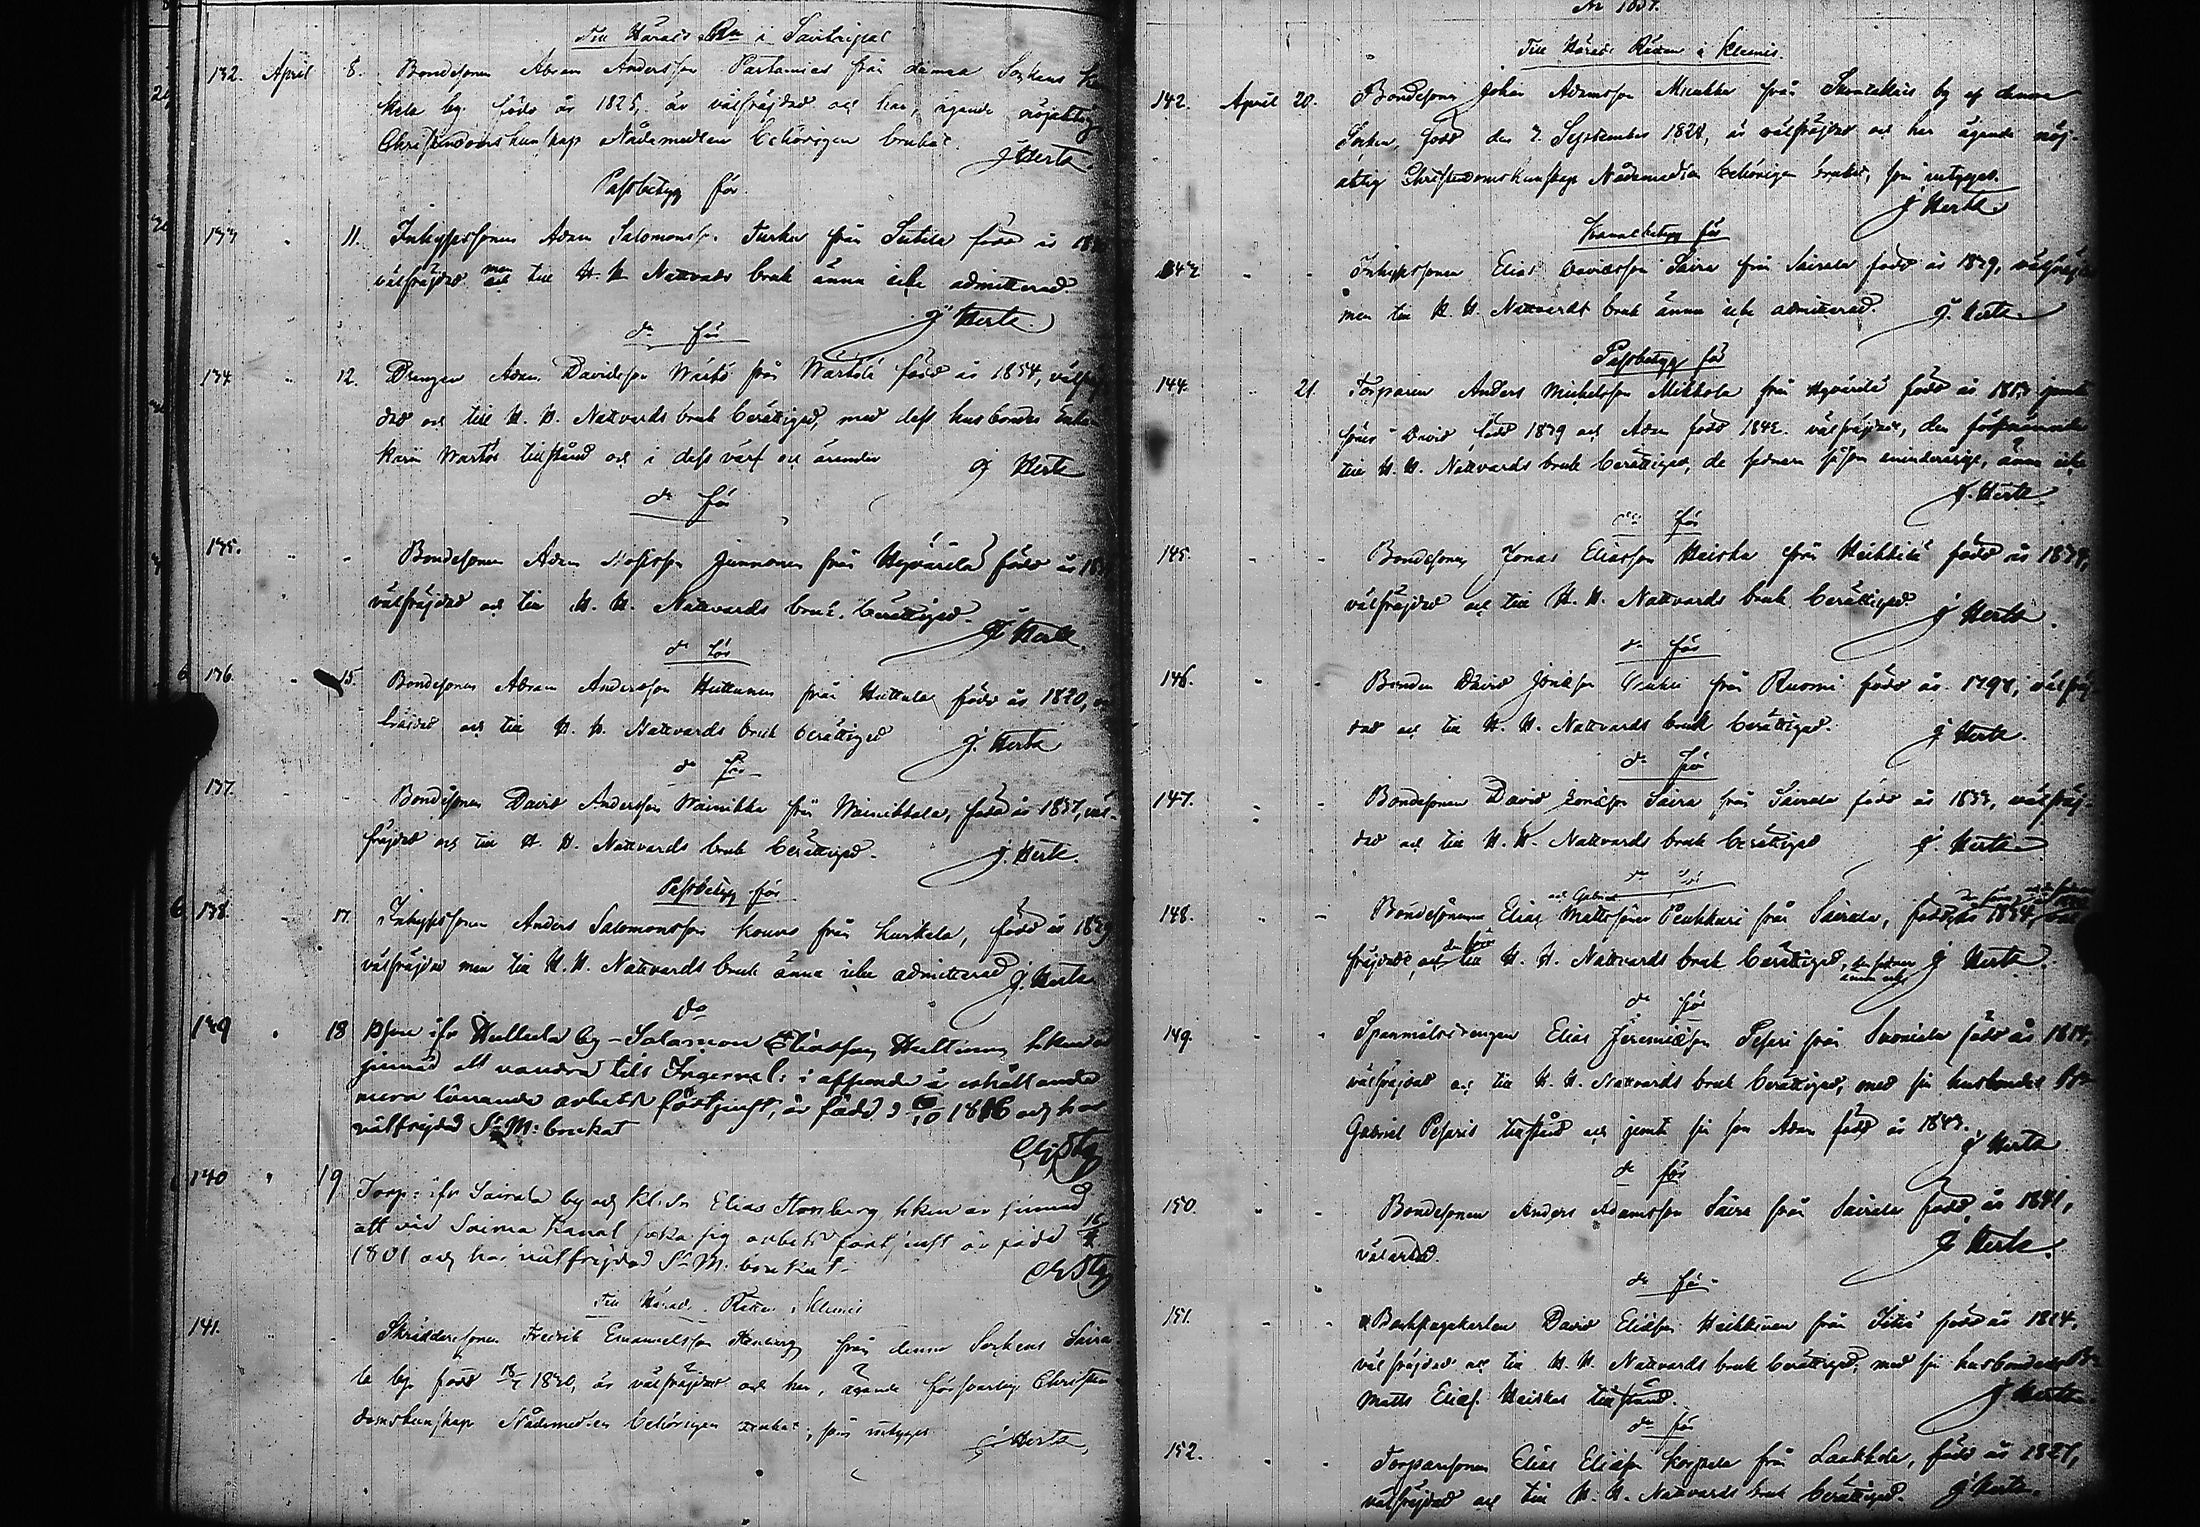 Till Härads Rn i Savitaipal
132. April 8. Bondesonen Abram Andersson Partanies från denna Sockens
by född år 1825, är välfräjdad och har, ägande nöjaktig
Christendomskunskap Nådemedlen behörigen brukat. J Hertz
Passbetyg för
133 " 11. Inhyssonen Adam Salomonss. Turkia från Suttela född år
välfräjdad men till H. H. Nattvards bruk ännu icke admitterad.
J Hertz.
do för
134 " 12. Drengen Adam Davidsson Wärtö från Wärtölä född år 1834,
dad och till H. H. Nattvards bruk berättigad, med dess husbondes Enkan
Karin Wärtös tillstånd och i dess värf och ärender J Hertz
do för
135. " - Bondesonen Adam Junnonen från Hyvärilä född år
välfräjdad och till H. H. Nattvards bruk berättigad.
J Hertz.
do för
136. " 15. Bondesonen Abram Andersson Huttunen från Huttula, född år 1820,
fräjdad och till H. H. Nattvards bruk berättigad J. Hertz
do för
137. - - Bondesonen David Andersson Wainikka från Wainikkala, född år 1837, väl-
fräjdad och till H. H. Nattvards bruk berättigad. J. Hertz.
Passbetyg för
138. 17. Inhyssonen Anders Salomonsson Kouvo från Kurkela, född år 1839
välfräjdad men till H. H. Nattvards bruk ännu icke admitterad J. Hertz
do
139 " 18 ifr Huttula by - Salamon Eliasson Huttunen hken är
sinnad att vandra till Ingermel: i afseende å erhållande
mera lönande arbets förtjenst, är född d 1816 och har
välfrejdad Sn M: brukat
140 " 19 Torp: ifr Sairala by och Kl. Sn Elias Stenberg hken är sinnad
att vid Saima Kanal söka sig arbets förtjenst är född
1801 och har välfrejdad Sn M. brukat -
Till Härads Rätten i Klemis
141. - Skräddaresonen Fredrik Emanuelsson Stenberg från denna Sockens Saira
la by född 1820, är välfräjdad och har, ägande försvarlig Christen
domskunskap Nådemedlen behörigen brukat, som intygas J Hertz.
År 1837.
Till Härads Rätten i Klemis.
142. April 20. Bondesonen Johan Adamsson från by af denna
Socken född den 7 September 1828, är välfräjdad och har ägande nöj-
aktig Christendomskunskap Nådemedlen behörigen brukat, som intygas.
J Hertz.
Kanalbetyg för
143 - - Inhyssonen Elias Davidsson Saira från Sairala född år 1839, välfräjdad
men till H. H. Nattvards bruk ännu icke admitterad. J. Hertz.
Passbetyg för
144. " 21. Torparen Anders Michelsson Mikkola från Hyvärilä född år 1813 jemte
söner David född 1839 och Adam född 1842. välfräjdade, den förstnämnde
till H. H. Nattvards bruk berättigad, de sednare såsom minderårige, ännu icke
J. Hertz
do för
145. - - Bondesonen Jonas Eliasson Haiska från Heikkilä född år 1834,
välfräjdad och till H. H. Nattvards bruk berättigad. J Hertz.
do för
146. " - Bonden David Jönsson från Ruomi född år 1797, välfräj-
dad och till H. H. Nattvards bruk berättigad. J Hertz.
do för
147. " - Bondesonen David Saira från Sairala född år 1833, välfräj-
dad och till H. H. Nattvards bruk berättigad J. Hertz
do för
148. " - Bondesönerne Elias och Gabriel Mattssöner Peuhkuri från Sairala, född den förra 1834,
fräjdade, och den förra till H. H. Nattvards bruk berättigad, den sednare ännu icke J Hertz.
do för
149. " - Spannmålsdrengen Elias Jeremiæson Pesari från Suomala född år 1814,
välfräjdad och till H. H. Nattvards bruk berättigad, med sin husbondes
Gabriel Pesaris tillstånd och jemte sin son Adam född år 1843.
J Hertz
do för
150. " - Bondesonen Anders Adamsson Saira från Sairala född år 1841,
välartad. J Hertz.
do för
151. - - Backstugukarlen David Eliasson Heikkinen från född år 1814,
välfräjdad och till H. H. Nattvards bruk berättigad, med sin husbondes
Matts Eliæs. Haiskas tillstånd. J Hertz.
do för
152. " - Torparesonen Elias Eliæson Korpela från Laukkala, född år 1827,
välfräjdad och till H. H. Nattvards bruk berättigad. J Hertz.